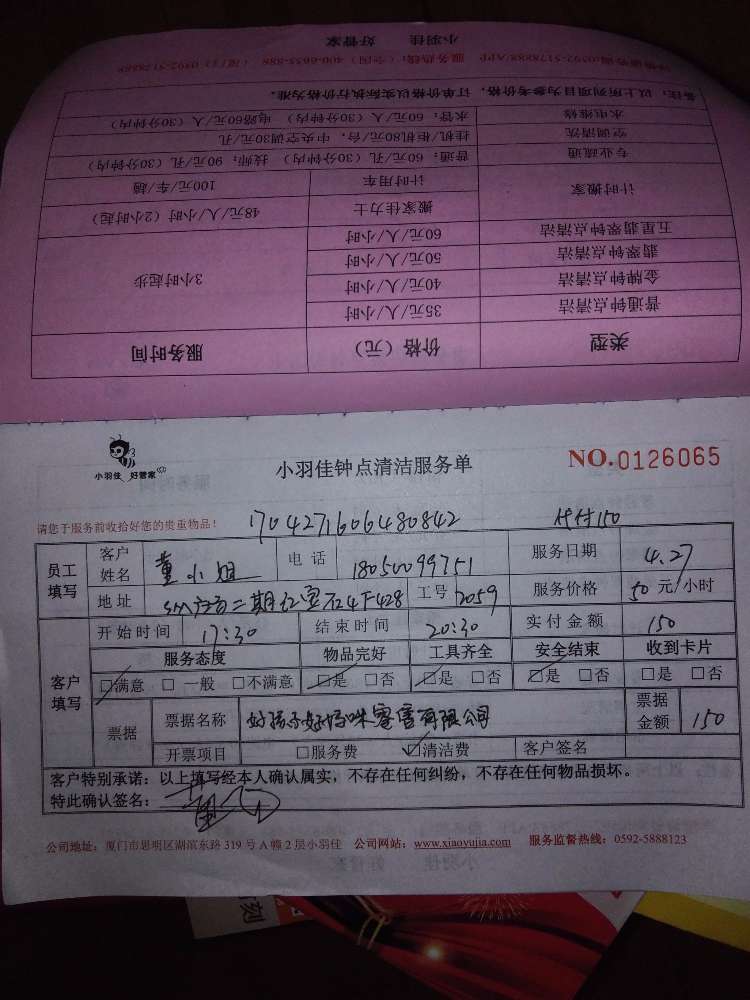 小羽佳　好管家
服务热线：(全国) 400-6655-888 (厦门) 0592-5178888
备注：以上所列项目为参考价格，订单价格以实际执行价格为准。
水电维修 水管：60元/人（30分钟内） 电路60元/人（30分钟内）
空调清洗 挂机/柜机80元/台，中央空调30元/孔
专业疏通 普通：60元/孔（30分钟内） 技师：90元/孔（30分钟内）
计时搬家 计时用车 100元/车/趟
搬家佳力士 48元/人/小时（2小时起）
五星翡翠钟点清洁 60元/人/小时
翡翠钟点清洁 50元/人/小时 3小时起步
金牌钟点清洁 40元/人/小时
普通钟点清洁 35元/人/小时
类型 价格（元） 服务时间
小羽佳 好管家
小羽佳钟点清洁服务单
NO.0126065
请您于服务前收拾好您的贵重物品！
1704271606480842 代付150
员工填写 客户姓名 董小姐 电话 18050099751 服务日期 4.27
地址 SM广场二期 428 工号 2059 服务价格 50 元/小时
客户填写 开始时间 17:30 结束时间 20:30 实付金额 150
服务态度 物品完好 工具齐全 安全结束 收到卡片
☑满意 □一般 □不满意 ☑是 □否 ☑是 □否 ☑是 □否 □是 □否
票据 票据名称 好孩子好妈咪零售有限公司 票据金额 150
开票项目 □服务费 ☑清洁费 客户签名
客户特别承诺：以上填写经本人确认属实，不存在任何纠纷，不存在任何物品损坏。
特此确认签名：
公司地址：厦门市思明区湖滨东路 319 号 A 幢 2 层小羽佳 公司网站：www.xiaoyujia.com 服务监督热线：0592-5888123